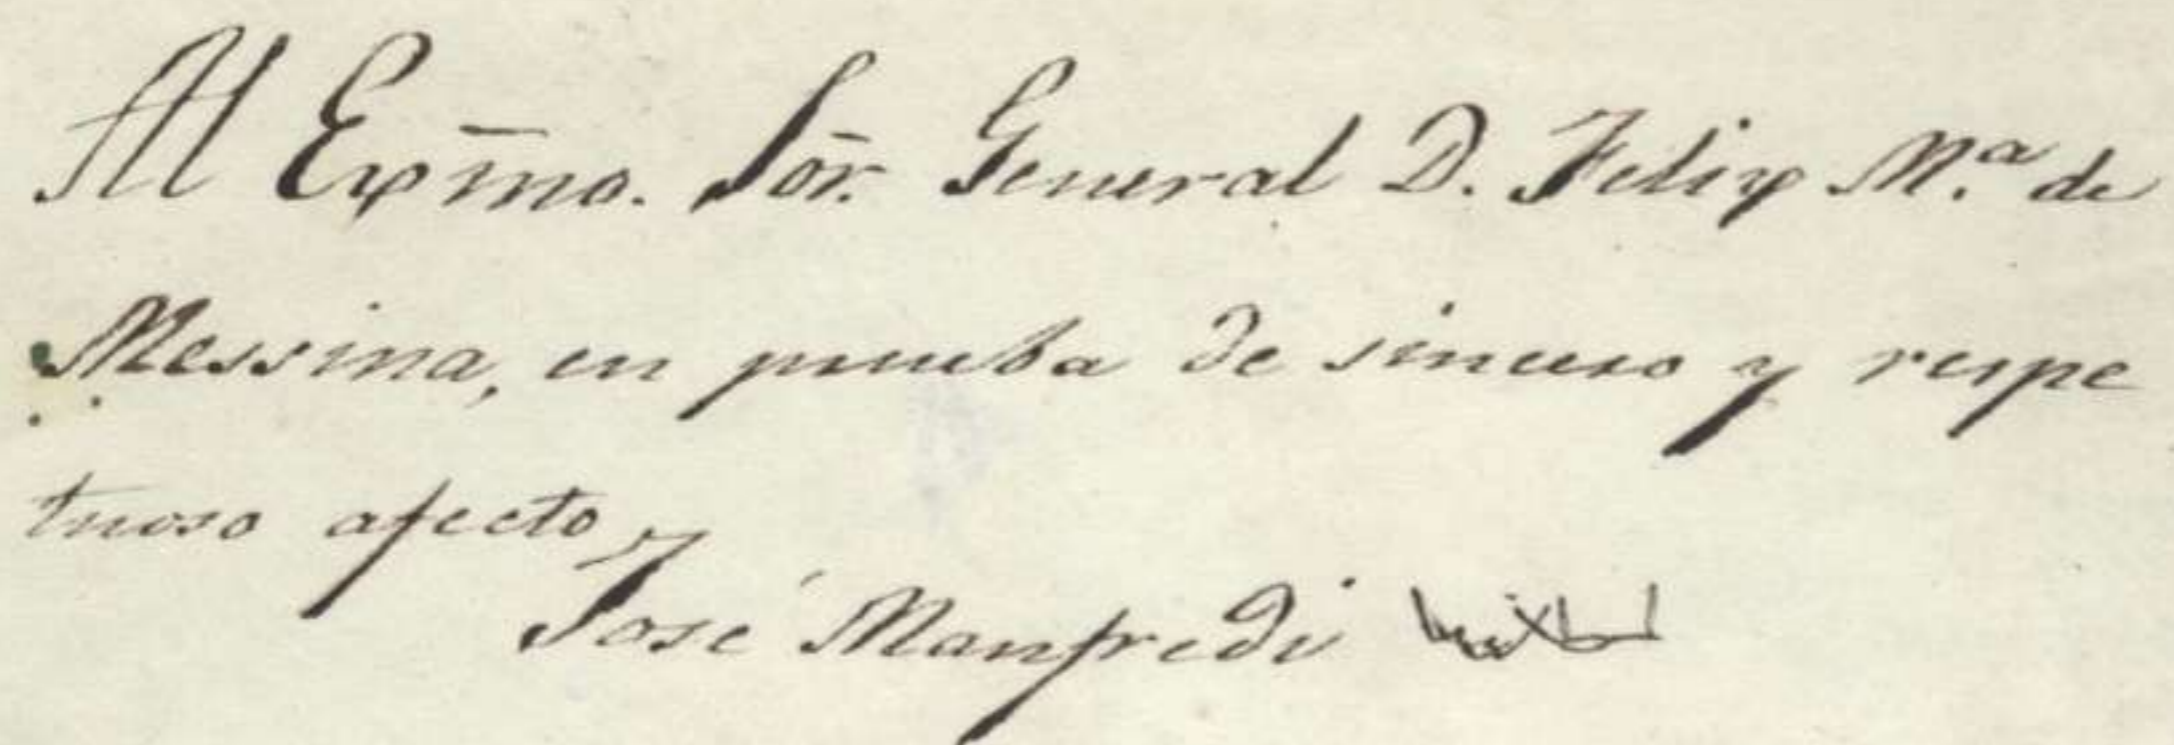 Al Exm̄o. Sōr. General D. Felix M.ª de
Messina, en prueba de sincero y respe
tuoso afecto
José Manfredi